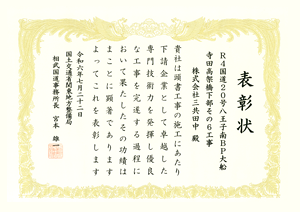 表彰状
R4国道20号八王子南BP大船
寺田高架橋下部その6工事
株式会社三共田中 殿
貴社は頭書工事の施工にあたり
下請企業として卓越した
専門技術力を発揮し優良
な工事を完遂する過程に
おいて果たしたその功績は
まことに顕著であります
よってこれを表彰します
令和六年七月二十二日
国土交通省関東地方整備局
相武国道事務所長 宮本 雄一